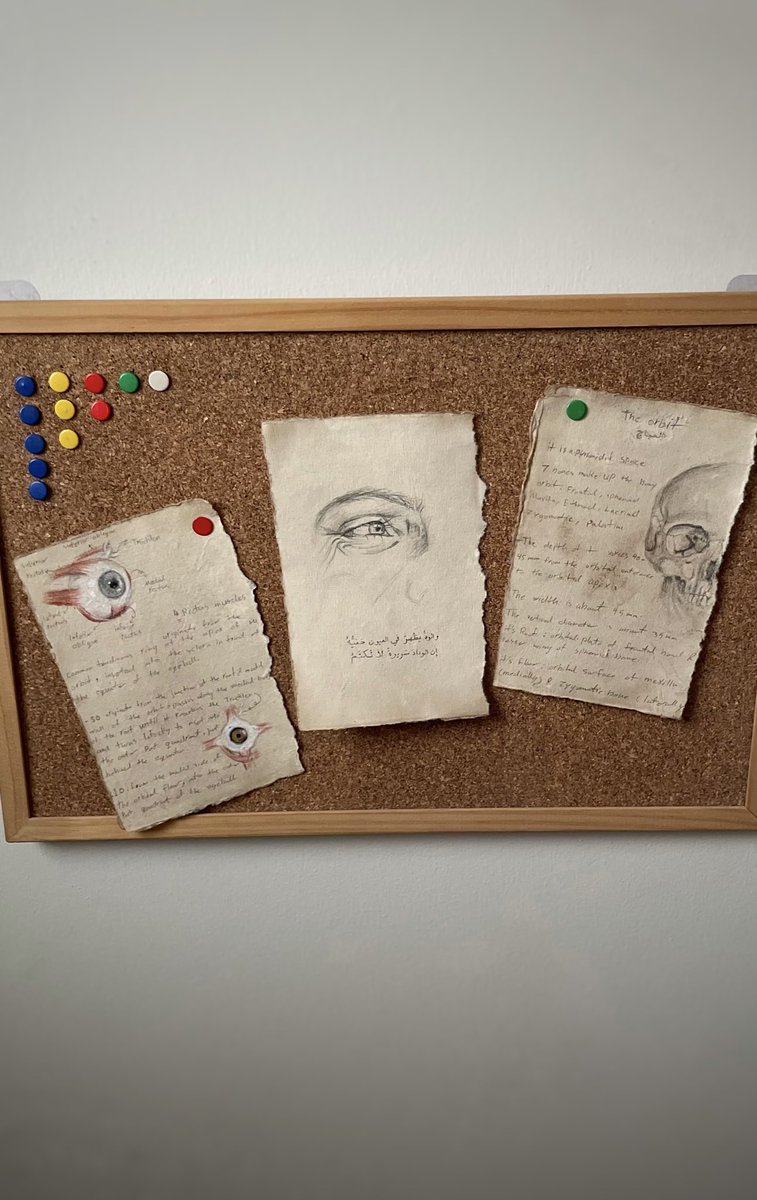 Superior oblique
Trochlea
Medial
Rectus
Inferior
oblique
4 Rectus muscles
originate from the
Common tendinous ring at the apex of the
orbit & inserted into the sclera in front of
the equator of the eyeball.
SO originate from the junction of the roof & medial
wall of the orbit passes along the medial
the roof until it reaches the Trochlea
and turns laterally to insert into
the outer Post quadrant, just
behind the equator
IO, from the medial side of
the orbital floor, into the outer
Post quadrant of the eyeball
والودُّ يظهرُ في العيون خفيُّهُ
إن الودادَ سريرةٌ لا تُكتمُ
The orbit
الحجاج
it is a pyramidal space
7 bones make up the bony
orbit: Frontal, sphenoid
Maxilla, Ethmoid, Lacrimal
Zygomatic, Palatine
The depth of it varies 40-
45 mm from the orbital entrance
to the orbital apex
The width is about 45 mm.
The vertical diameter is about 35 mm
it's Roof: orbital plate of frontal bone &
lesser wing of sphenoid bone
it's floor: orbital surface of maxilla
(medially) & Zygomatic bone (laterally)